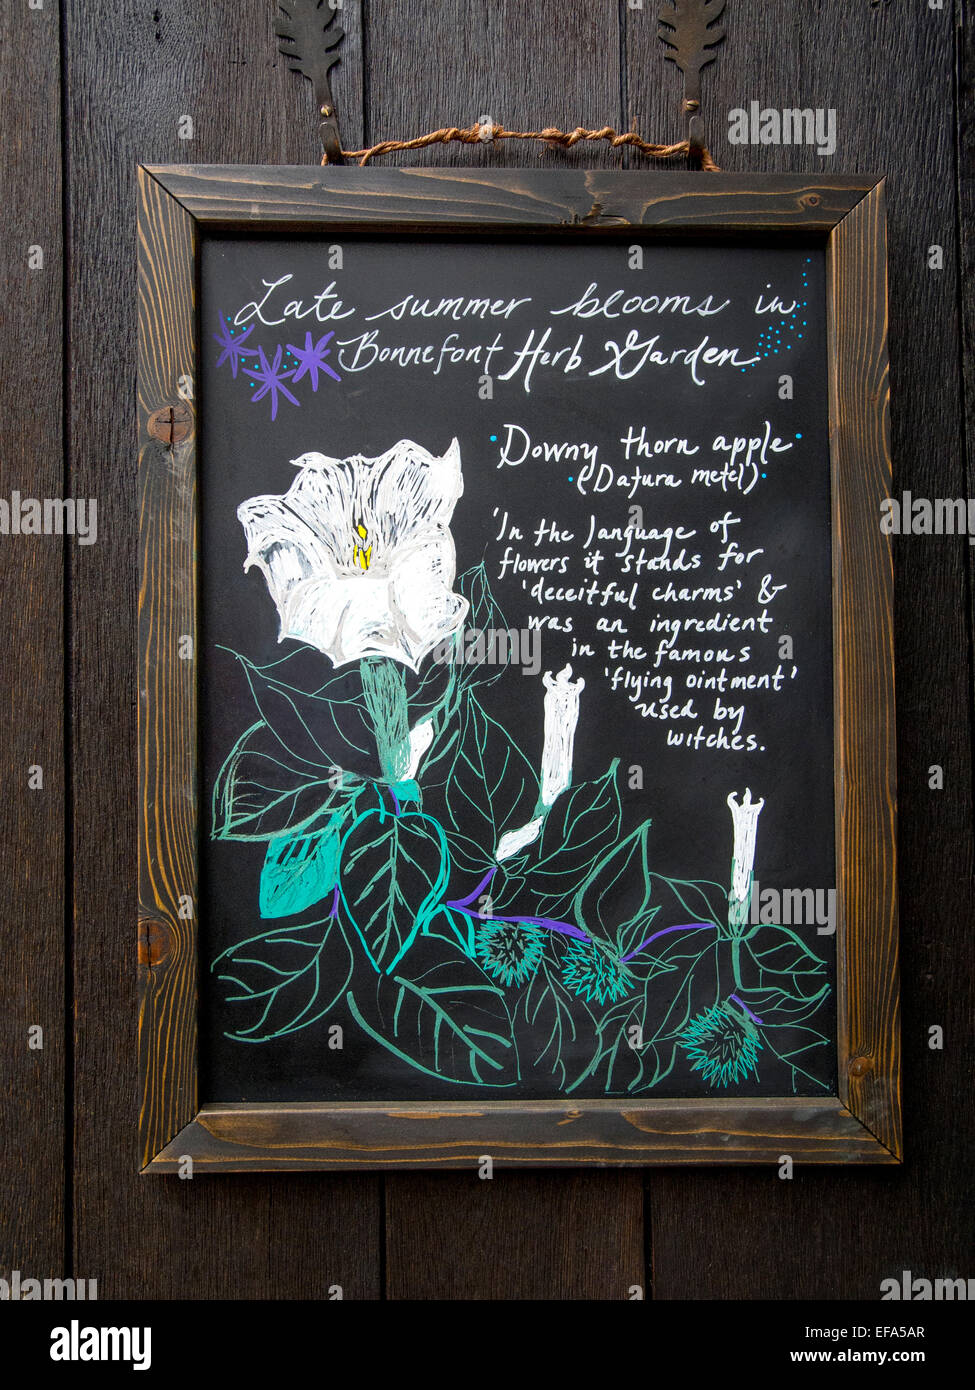 Late summer blooms in
Bonnefont Herb Garden
Downy thorn apple
(Datura metel)
'In the language of
flowers it stands for
'deceitful charms' &
was an ingredient
in the famous
'flying ointment'
used by
witches.
alamy
alamy
a
alamy
Image ID: EFA5AR
www.alamy.com